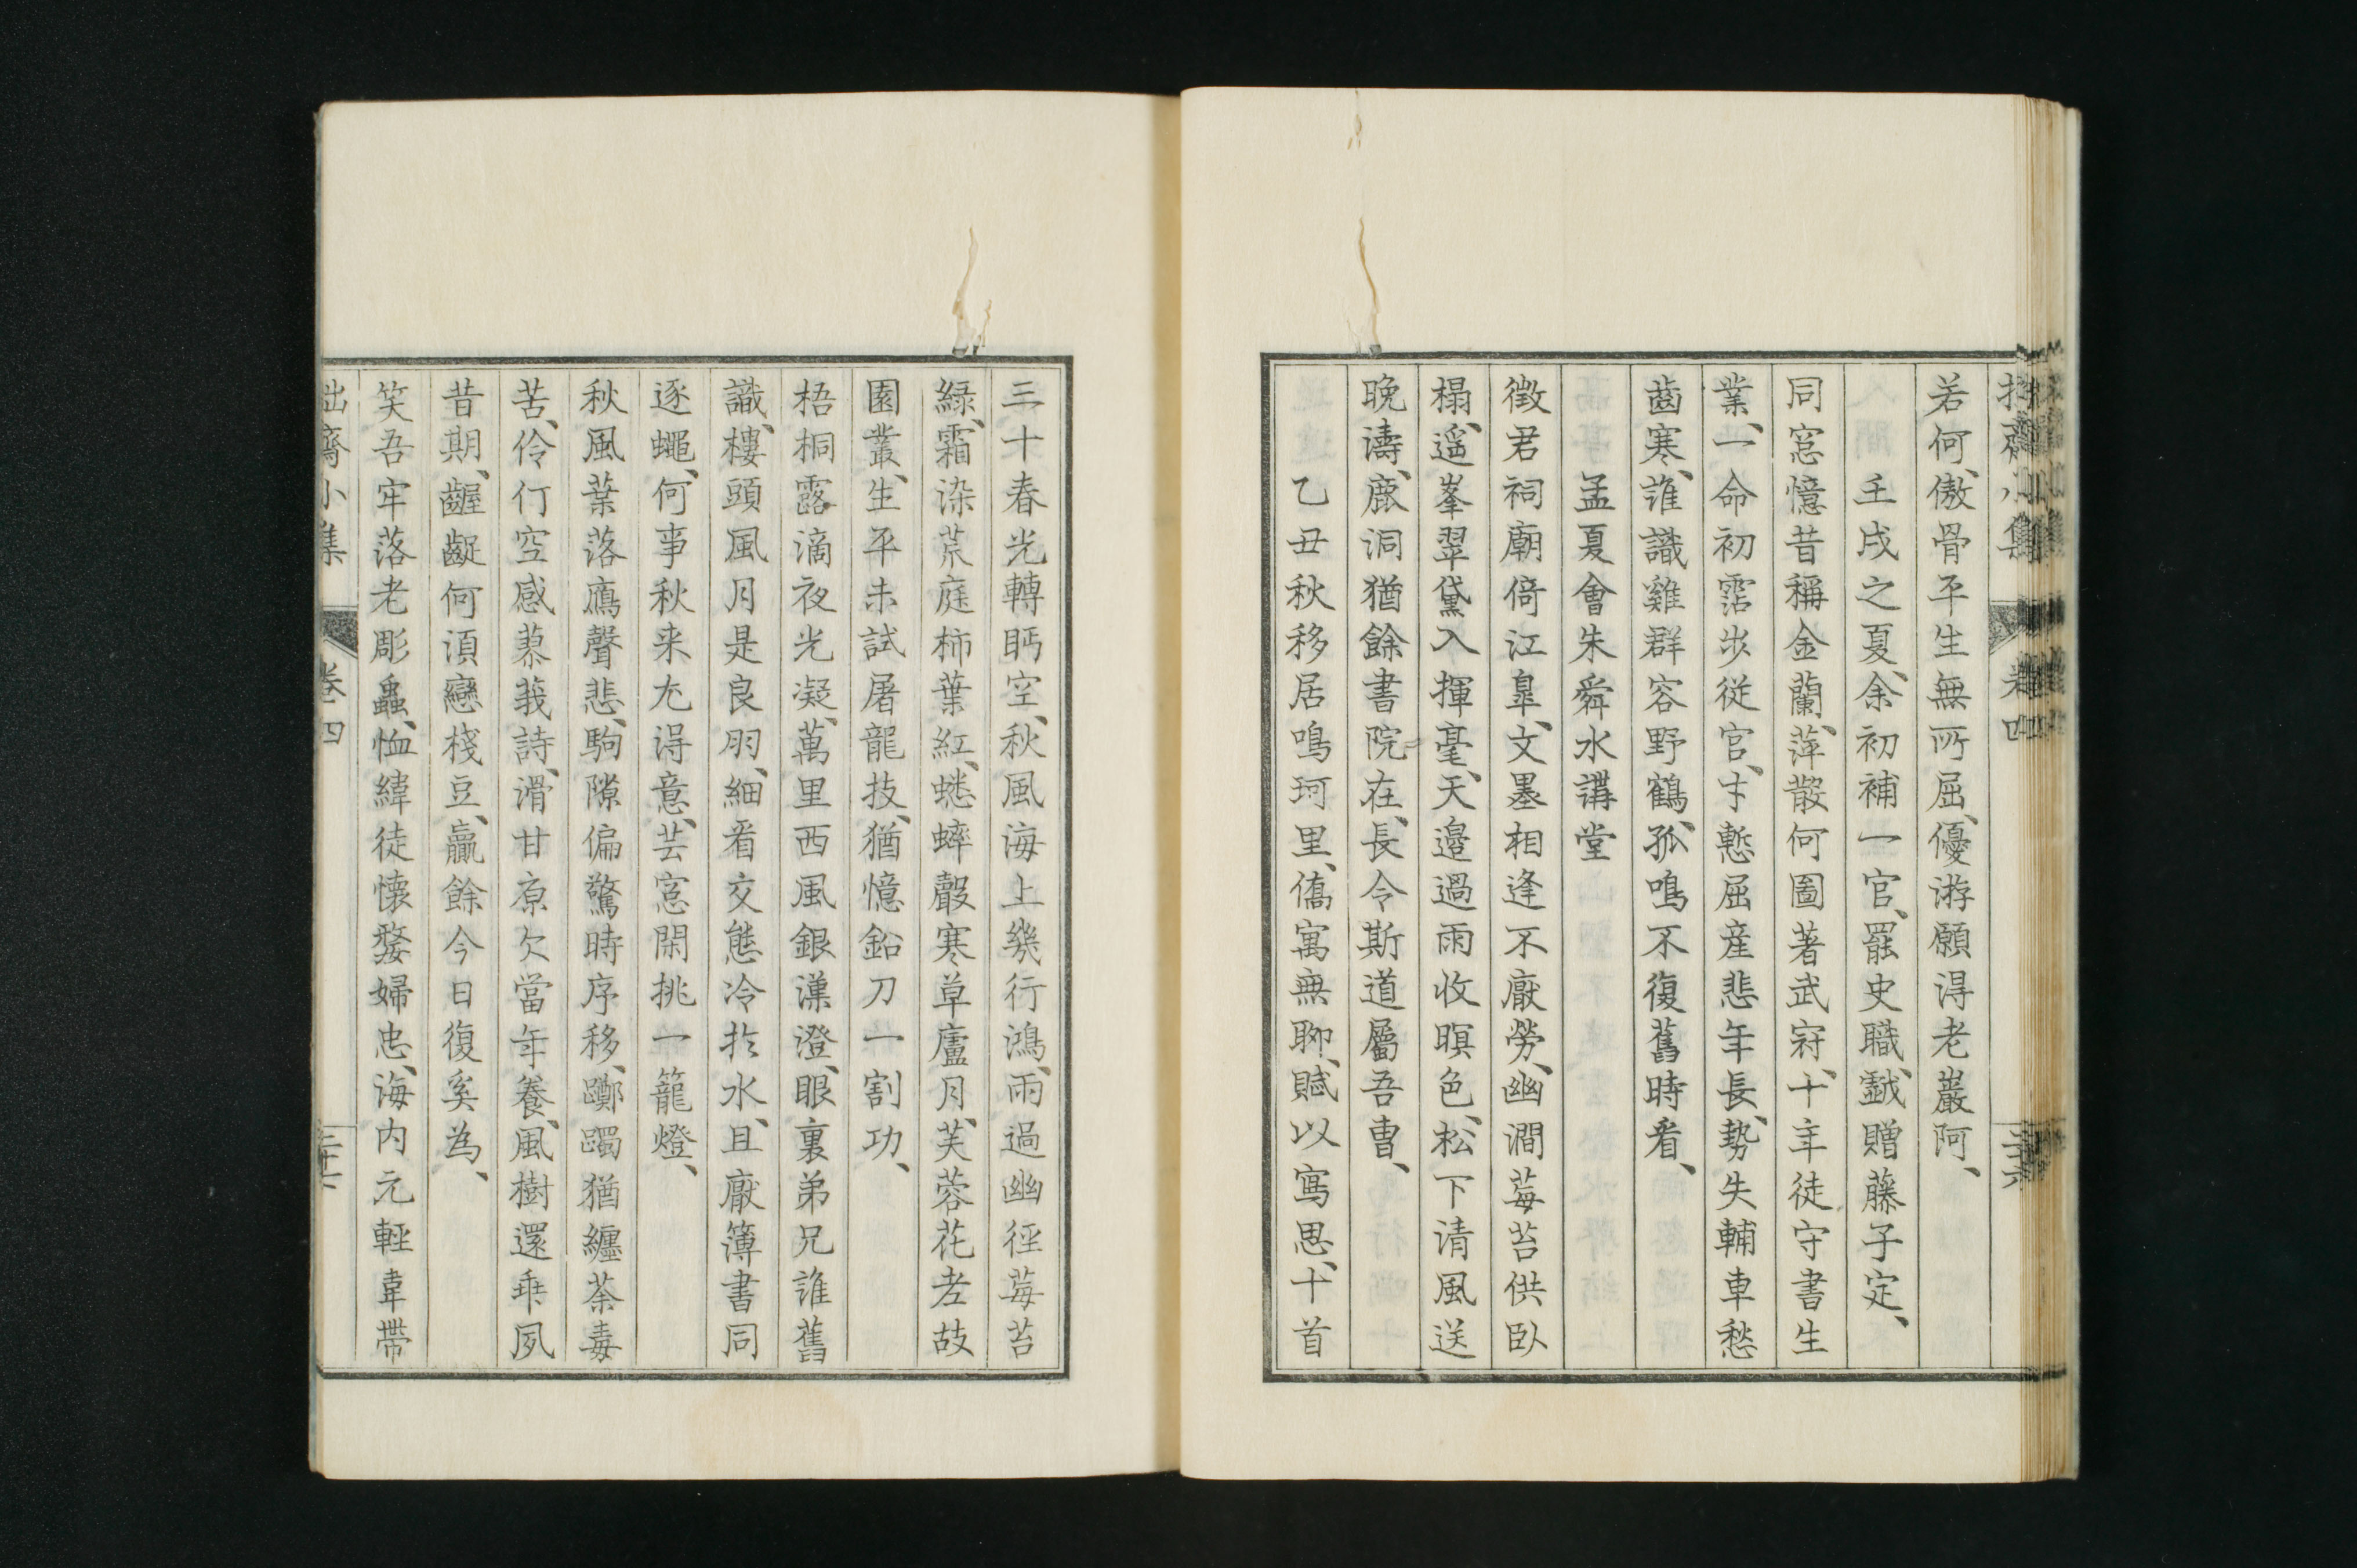 拙齋小集 卷四 三十六
若何、傲骨平生無所屈、優游願得老巖阿、
壬戌之夏、余初補一官、罷史職、戱贈藤子定、
同窓憶昔稱金蘭、萍散何圖著武冠、十年徒守書生
業、一命初霑步從官、才慙屈産悲年長、勢失輔車愁
齒寒、誰識雞群容野鶴、孤鳴不復舊時看、
孟夏會朱舜水講堂
徵君祠廟倚江皐、文墨相逢不厭勞、幽澗莓苔供臥
榻、遥峯翠黛入揮毫、天邊過雨收暝色、松下清風送
晚濤、鹿洞猶餘書院在、長令斯道屬吾曹、
乙丑秋移居鳴珂里、僑寓無聊、賦以寫思、十首
三十春光轉眄空、秋風海上幾行鴻、雨過幽徑莓苔
綠、霜染荒庭柿葉紅、蟋蟀聲寒草廬月、芙蓉花老故
園叢、生平未試屠龍技、猶憶鉛刀一割功、
梧桐露滴夜光凝、萬里西風銀漢澄、眼裏弟兄誰舊
識、樓頭風月是良朋、細看交態冷於水、且厭簿書同
逐蠅、何事秋来尤得意、芸窓閑挑一籠燈、
秋風葉落鴈聲悲、駒隙偏驚時序移、躑躅猶纏荼毒
苦、伶仃空感蓼莪詩、滑甘原欠當年養、風樹還乖夙
昔期、齷齪何須戀棧豆、贏餘今日復奚為、
笑吾牢落老彫蟲、恤緯徒懐嫠婦忠、海内元輕韋帶
拙齋小集 卷四 三十七